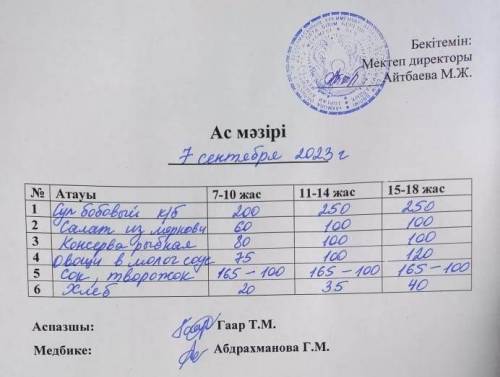 Бекітемін:
Мектеп директоры
Айтбаева М.Ж.
Ас мәзірі
7 сентября 2023 г
№ Атауы 7-10 жас 11-14 жас 15-18 жас
1 Суп бобовый к/б 200 250 250
2 Салат из моркови 60 100 100
3 Консерва рыбная 80 100 100
4 овощи в молоч соус 75 100 120
5 Сок, творожок 165-100 165-100 165-100
6 Хлеб 20 35 40
Аспазшы: Гаар Т.М.
Медбике: Абдрахманова Г.М.